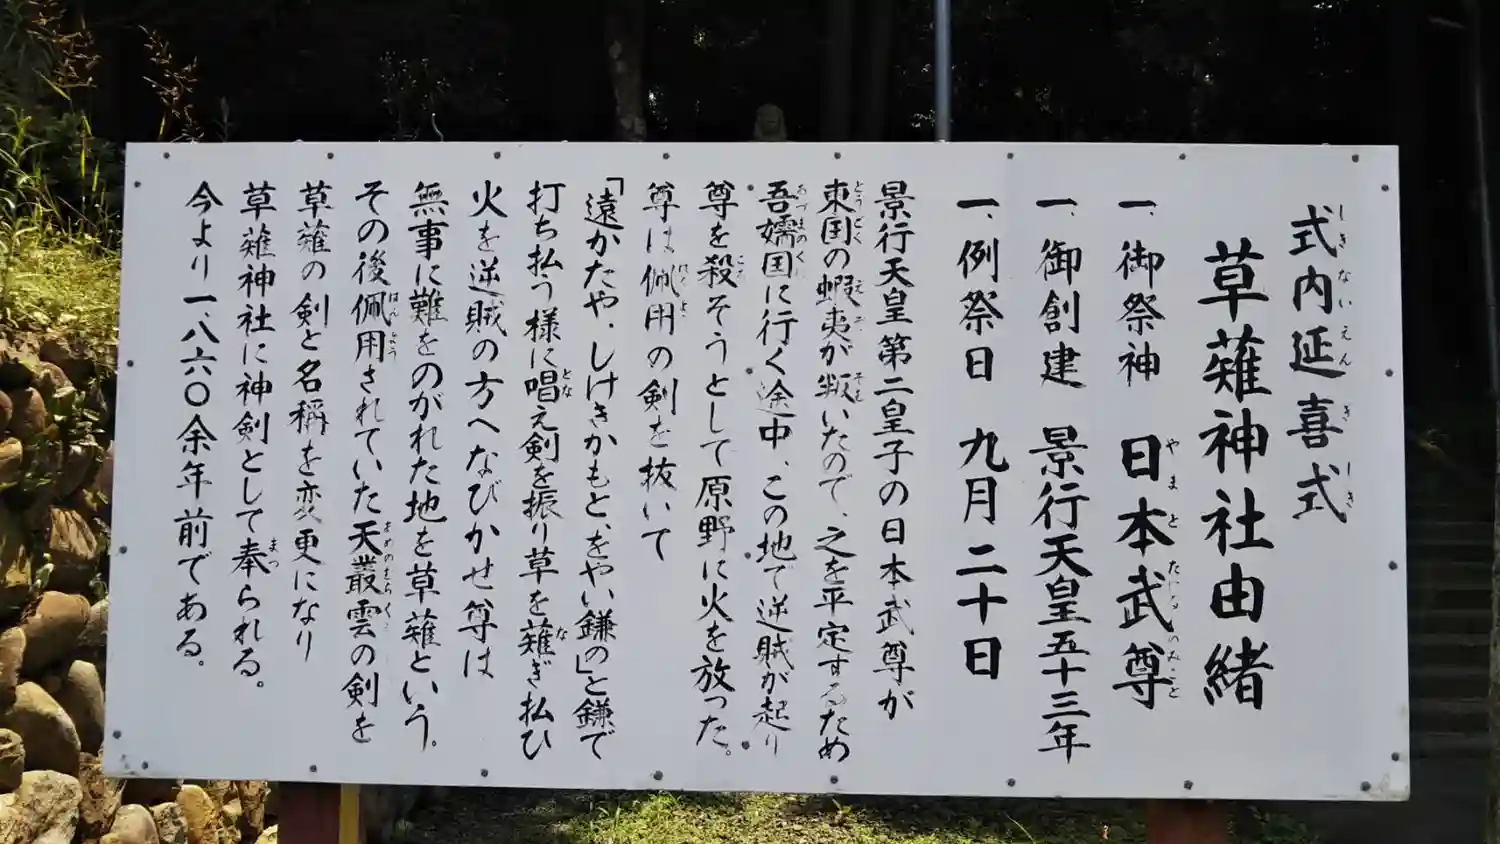 式内延喜式
草薙神社由緒
一、御祭神 日本武尊
一、御創建 景行天皇五十三年
一、例祭日 九月二十日
景行天皇第二皇子の日本武尊が
東国の蝦夷が叛いたので、之を平定するため
吾嬬国に行く途中、この地で逆賊が起り
尊を殺そうとして原野に火を放った。
尊は佩用の剣を抜いて
「遠かたや、しけきかもと、をやい鎌の」と鎌で
打ち払う様に唱え剣を振り草を薙ぎ払ひ
火を逆賊の方へなびかせ尊は
無事に難をのがれた地を草薙という。
その後佩用されていた天叢雲の剣を
草薙の剣と名稱を変更になり
草薙神社に神剣として奉られる。
今より一、八六〇余年前である。